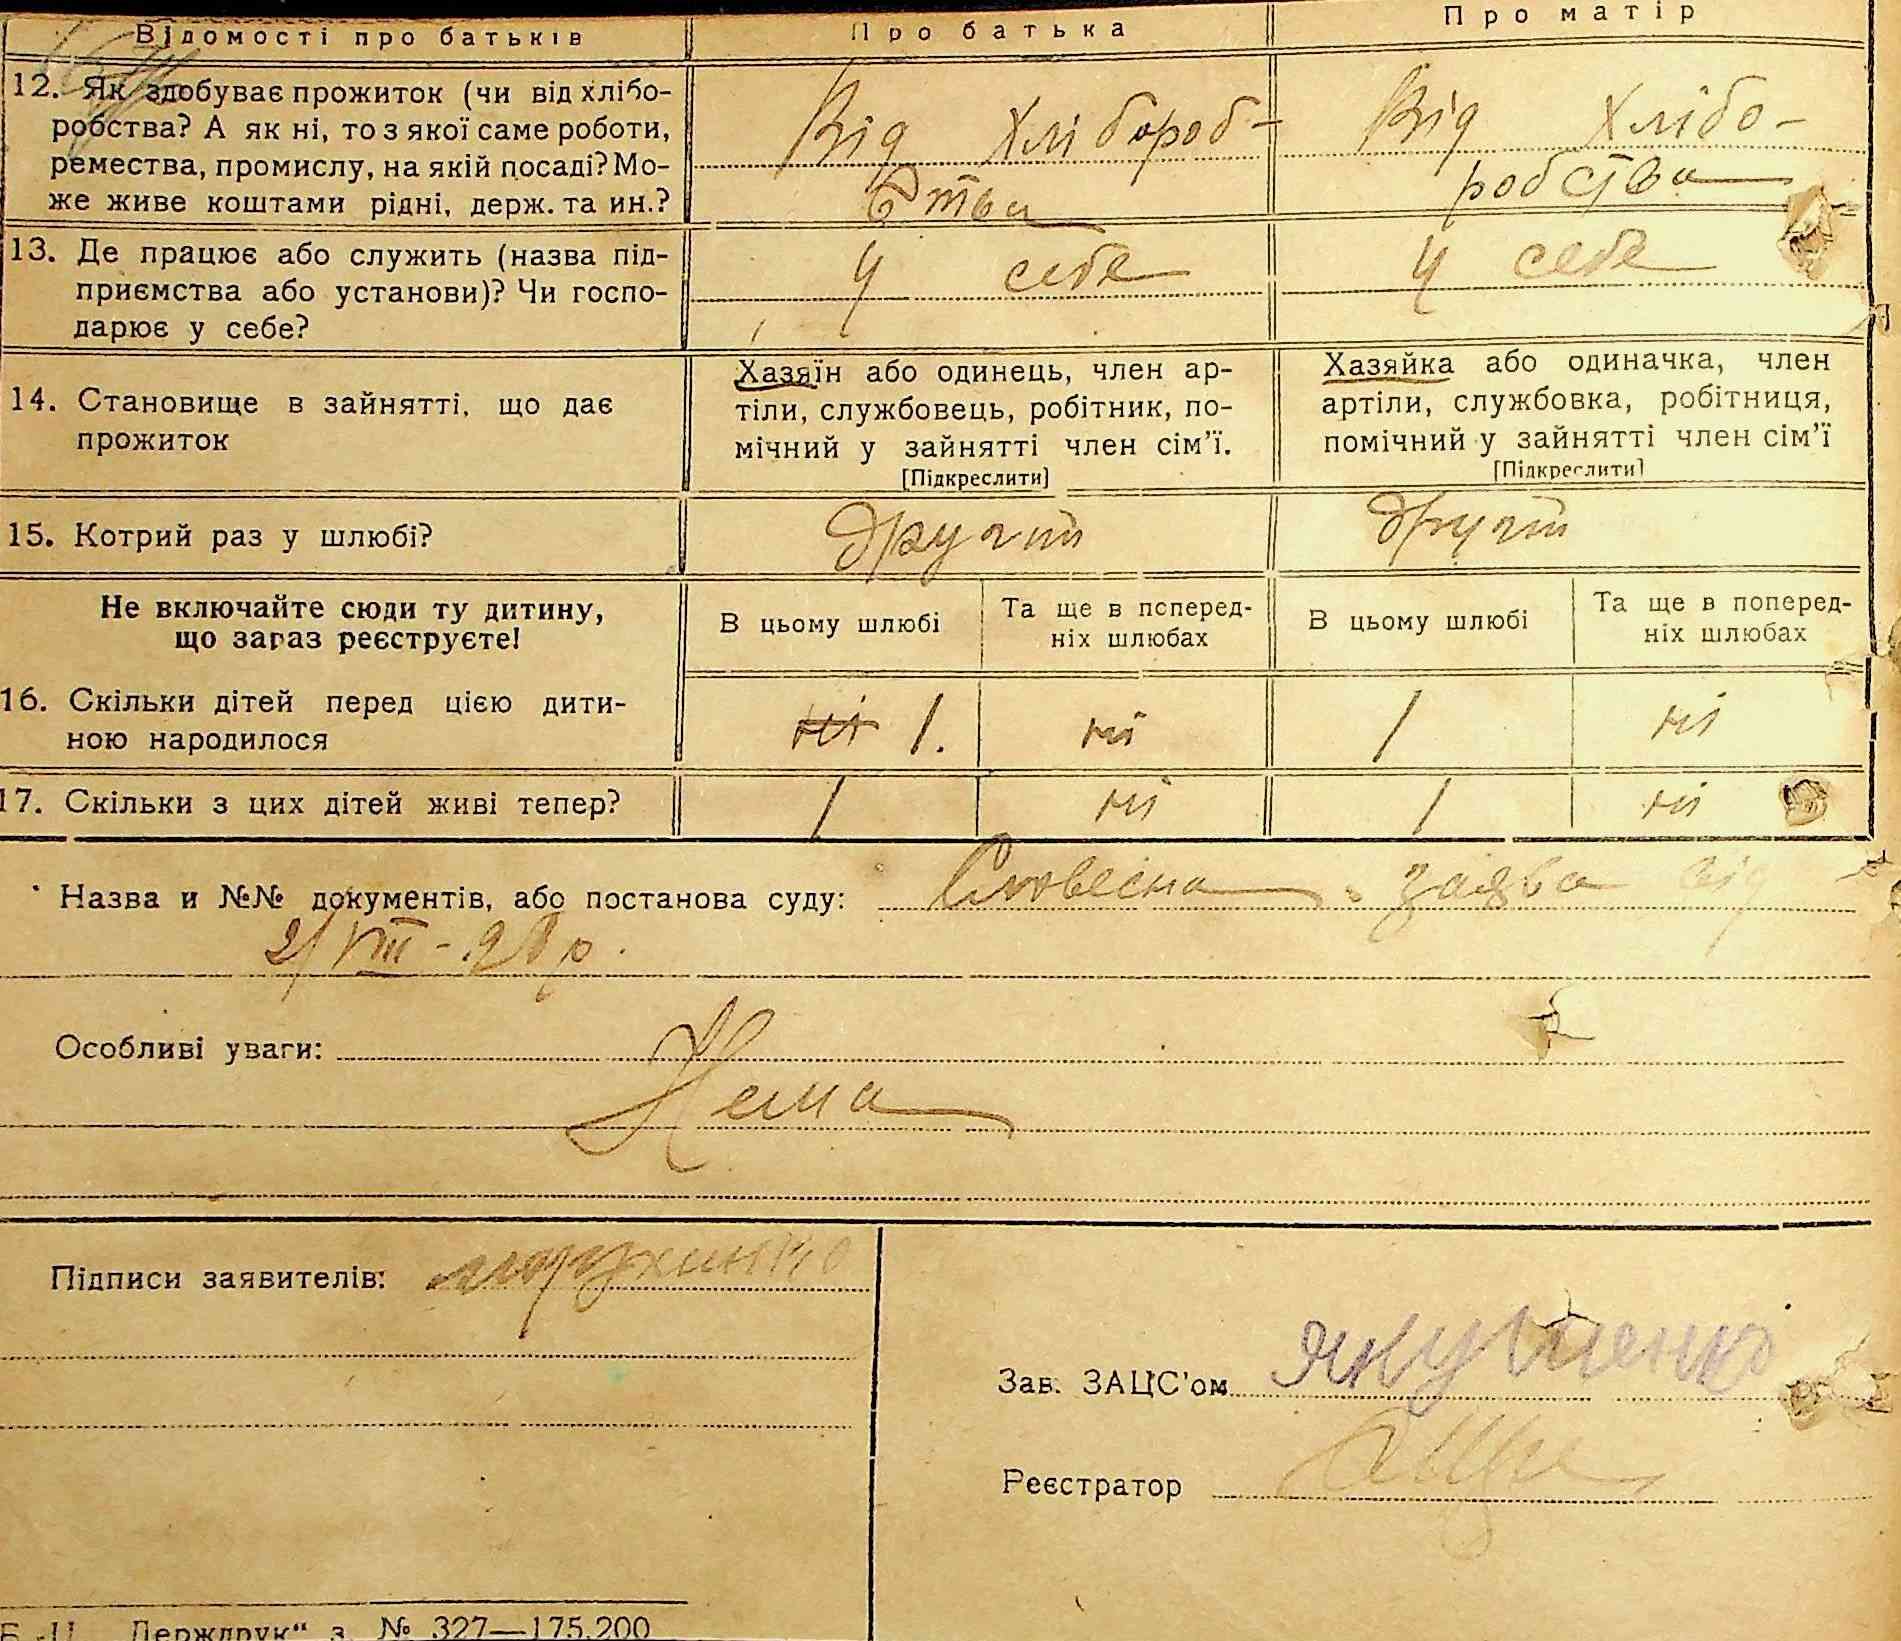 Відомості про батьків
Про батька
Про матір
12. Як здобуває прожиток (чи від хлібо-
робства? А як ні, то з якої саме роботи,
ремества, промислу, на якій посаді? Мо-
же живе коштами рідні, держ. та ин.?
Від хлібороб-
ства
Від хлібо-
робства
13. Де працює або служить (назва під-
приємства або установи)? Чи госпо-
дарює у себе?
У себе
У себе
14. Становище в зайнятті, що дає
прожиток
Хазяїн або одинець, член ар-
тіли, службовець, робітник, по-
мічний у зайнятті член сім’ї.
[Підкреслити]
Хазяйка або одиначка, член
артіли, службовка, робітниця,
помічний у зайнятті член сім’ї
[Підкреслити]
15. Котрий раз у шлюбі?
другий
другий
Не включайте сюди ту дитину,
що зараз реєструєте!
В цьому шлюбі
Та ще в поперед-
ніх шлюбах
В цьому шлюбі
Та ще в поперед-
ніх шлюбах
16. Скільки дітей перед цією дити-
ною народилося
ні 1.
ні
1
ні
17. Скільки з цих дітей живі тепер?
1
ні
1
ні
Назва и №№ документів, або постанова суду: Словесна заява від
2/VIII-28 р.
Особливі уваги:
Нема
Підписи заявителів:
Зав. ЗАЦС’ом
Реєстратор
Держдрук“ з. № 327—175.200